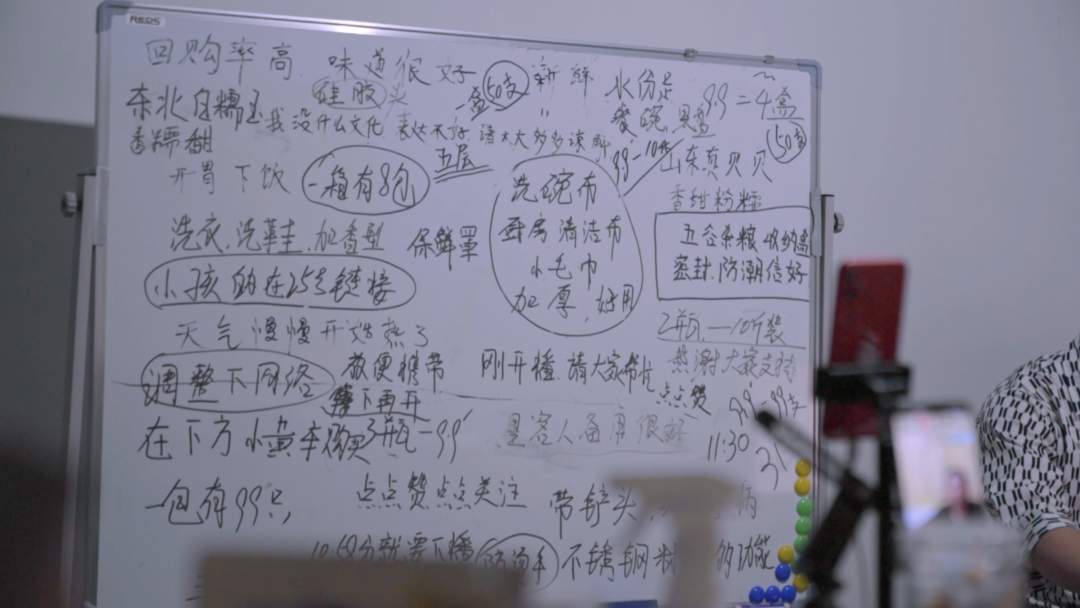 回购率高 味道很好 一盒50支 新鲜 水份足
硅胶头 餐碗,果盘 99=4盒
东北白糯玉 我没什么文化 表达不好 请大大多多谅解 50支
香糯甜 五层 99-10件 山东真贝贝
开胃下饭 一箱有8包 洗碗布 香甜粉糯
洗衣.洗鞋.加香型 保鲜罩 厨房清洁布 五谷杂粮收纳盒
小孩的在25号链接 小毛巾 密封.防潮信好
加厚.好用
天气慢慢开始热了 2瓶—10斤装
调整下网络 放便携带 刚开播.请大家帮忙 感谢大家支持
整下再开 点点赞 99-99支
在下方小黄车购买 3瓶-99 是客人备用很好 11:30
一包有99只 点点赞点点关注 带铲头
分就要下播 防烫手 不锈钢材 多功能